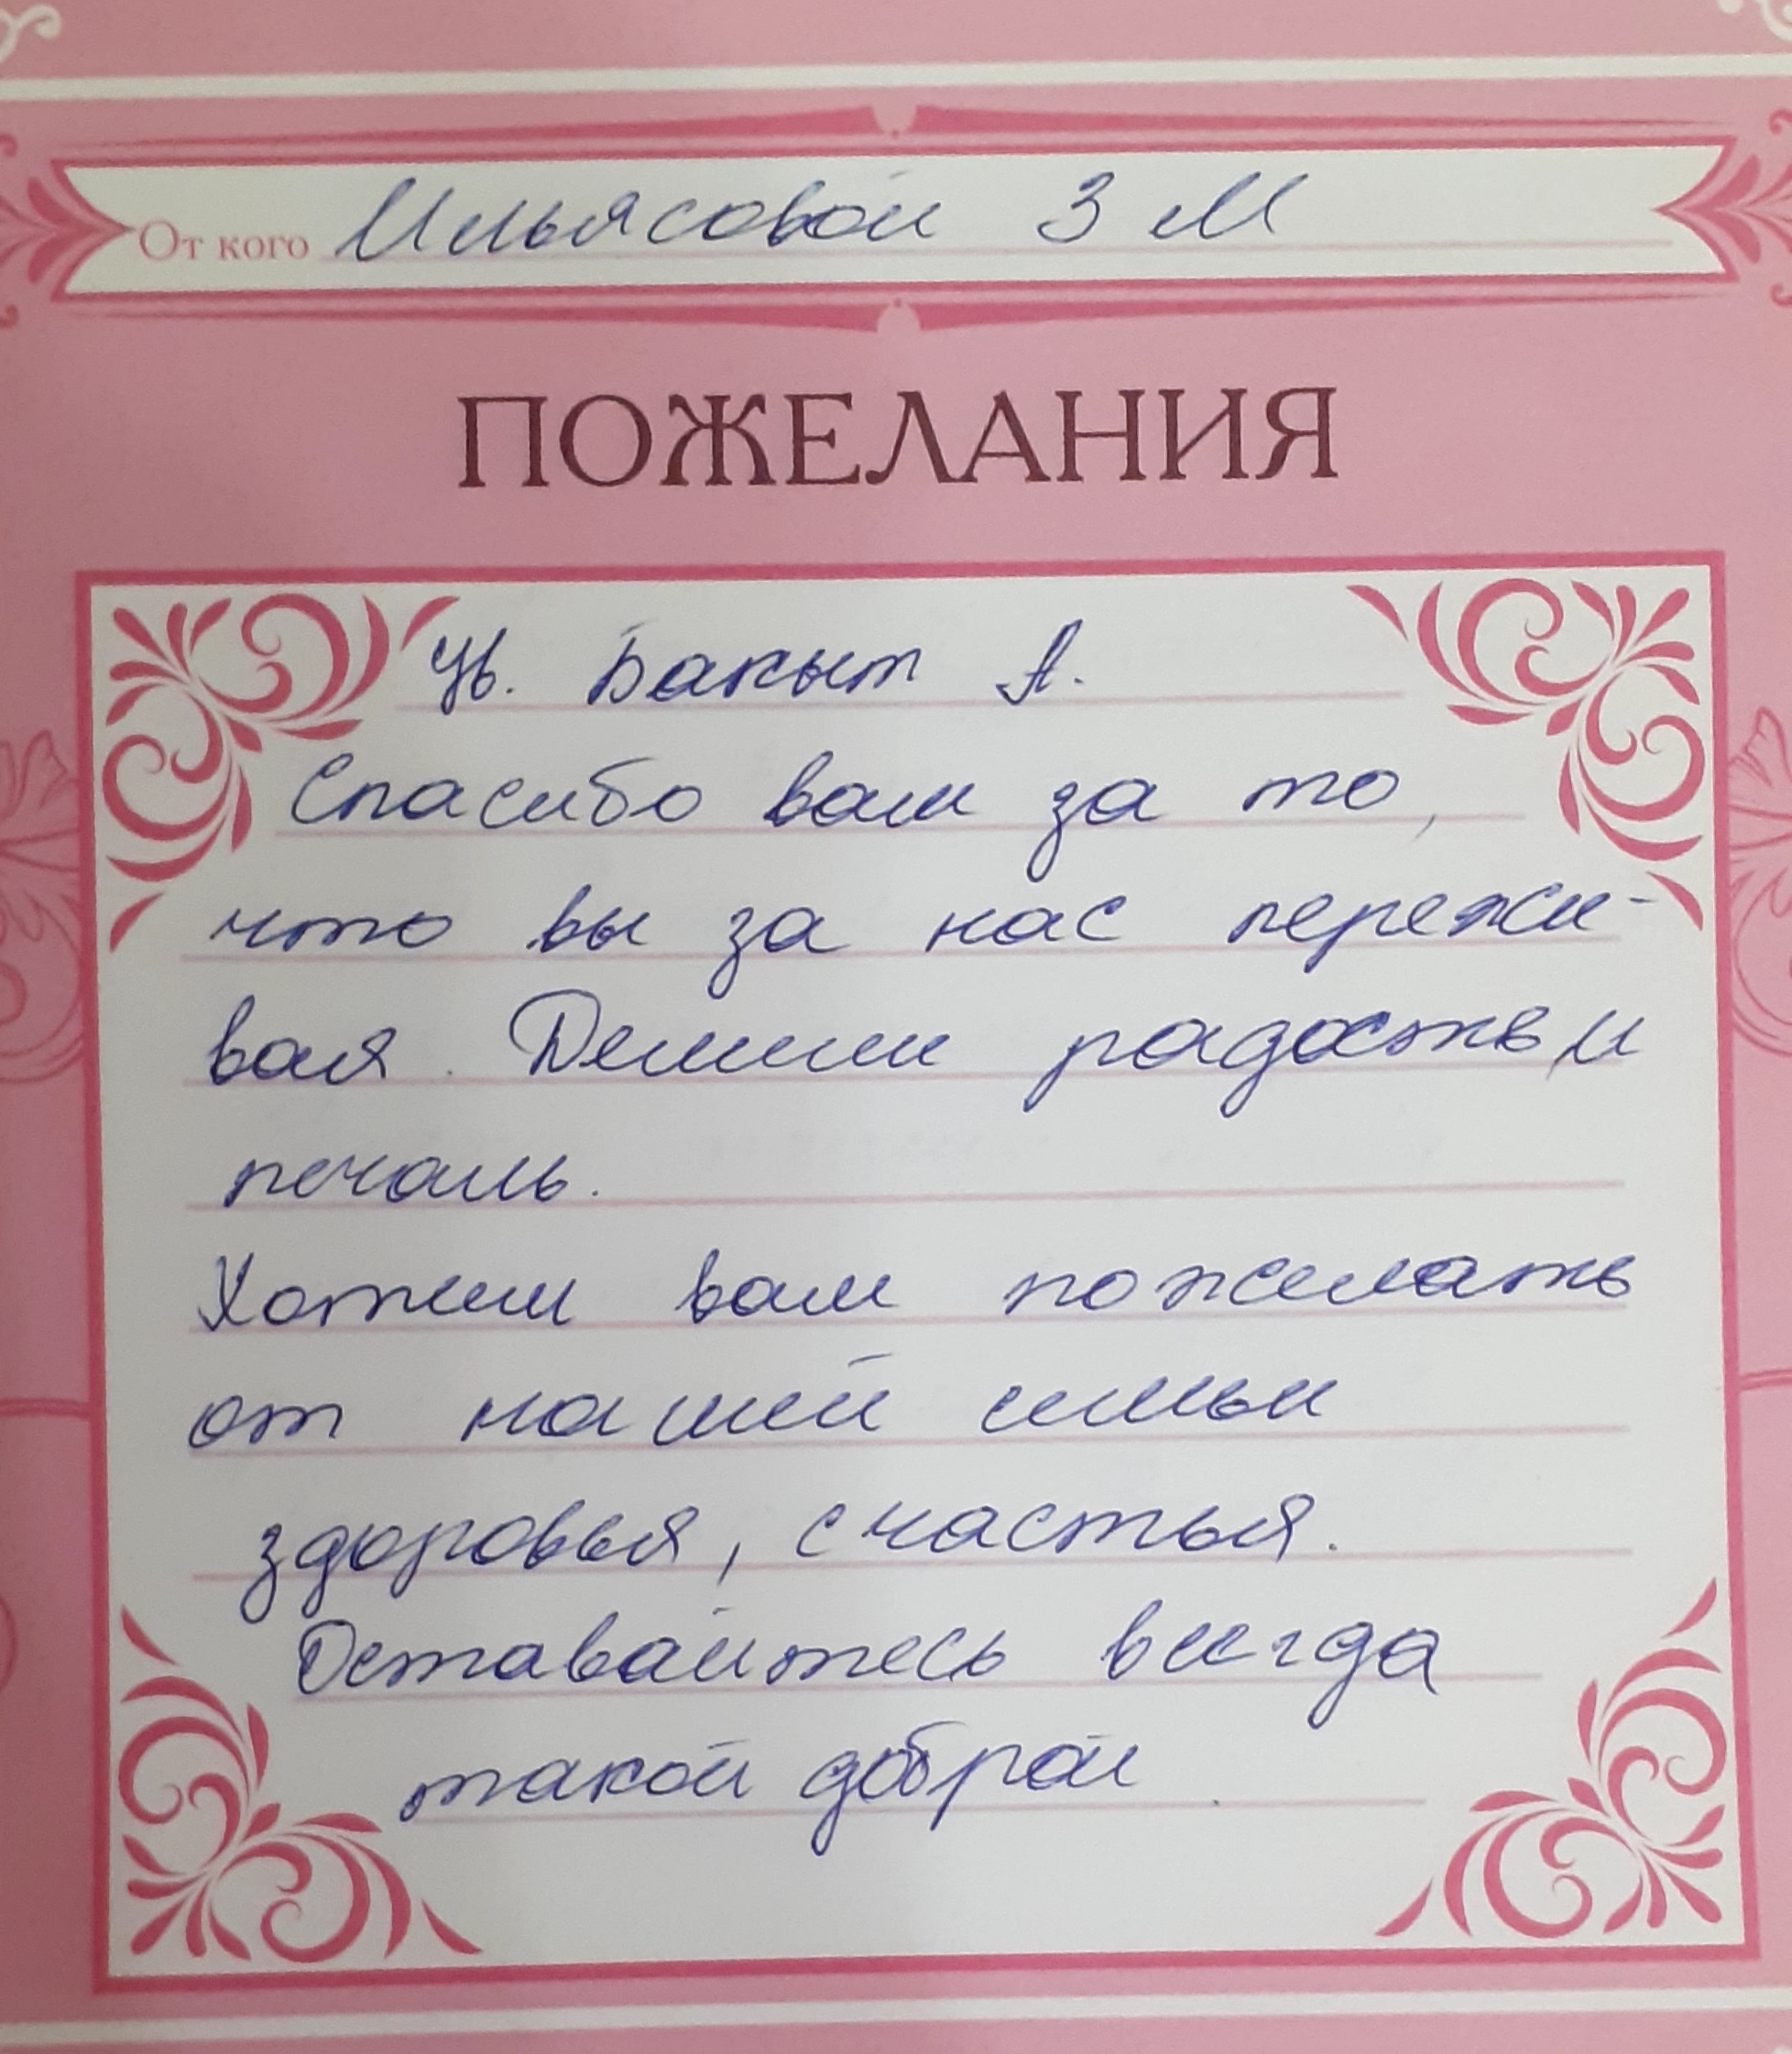 От кого Ильясовой З М
ПОЖЕЛАНИЯ
Ув. Бакыт А.
Спасибо вам за то,
что вы за нас пережи-
вая. Делили радость и
печаль.
Хотим вам пожелать
от нашей семьи
здоровья, счастья.
Оставайтесь всегда
такой доброй.